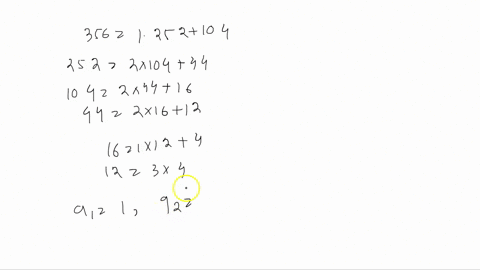 356 = 1. 252 + 104
252 = 2×104 + 44
104 = 2×44 + 16
44 = 2×16 + 12
16 = 1×12 + 4
12 = 3×4
q1 = 1, q2 =